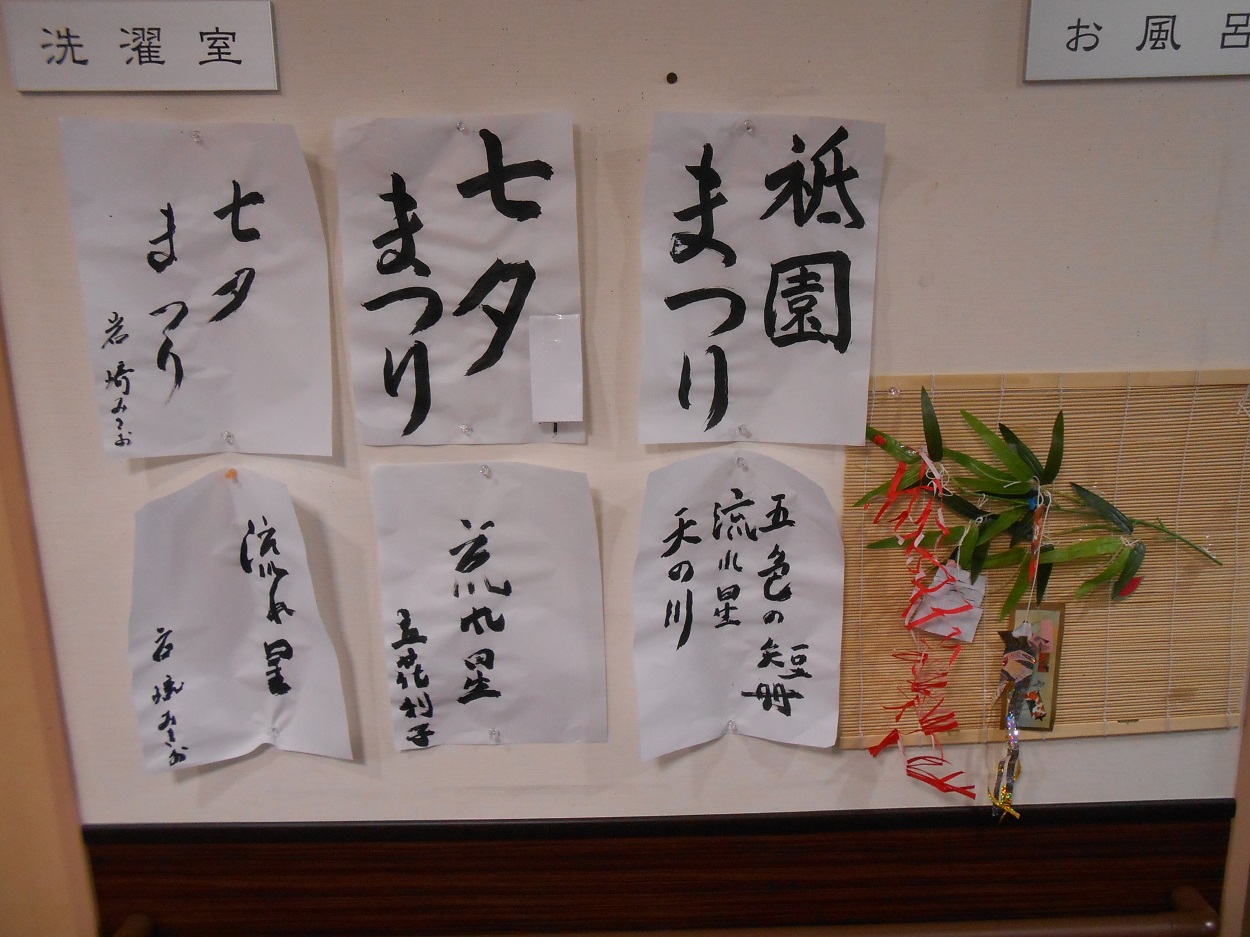 洗濯室
お風呂
祇園
まつり
七夕
まつり
七夕
まつり
岩崎みさお
五色の短冊
流れ星
天の川
流れ星
流れ星
岩崎みさお